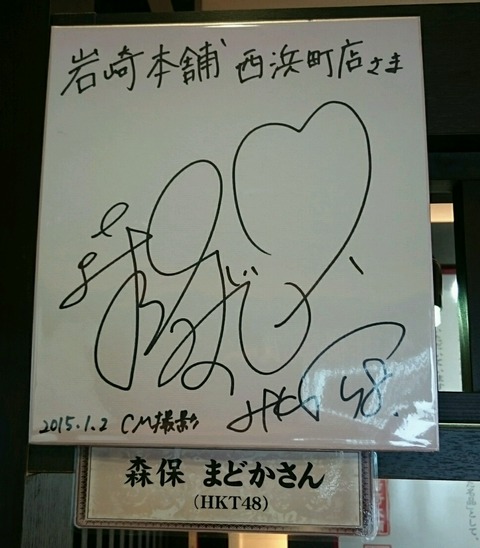 岩崎本舗 西浜町店さま
HKT48.
2015.1.2 CM撮影
森保 まどかさん
(HKT48)